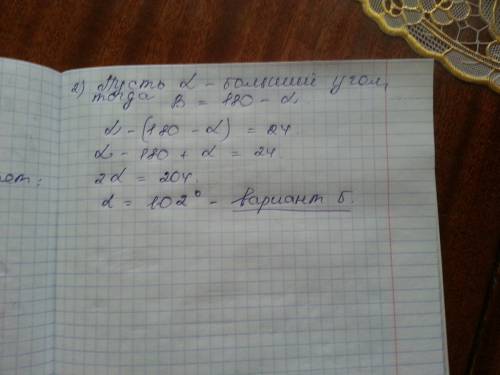 2) Пусть α - больший угол,
тогда β = 180 - α.
α - (180 - α) = 24
α - 180 + α = 24
2α = 204.
α = 102° - вариант Б.